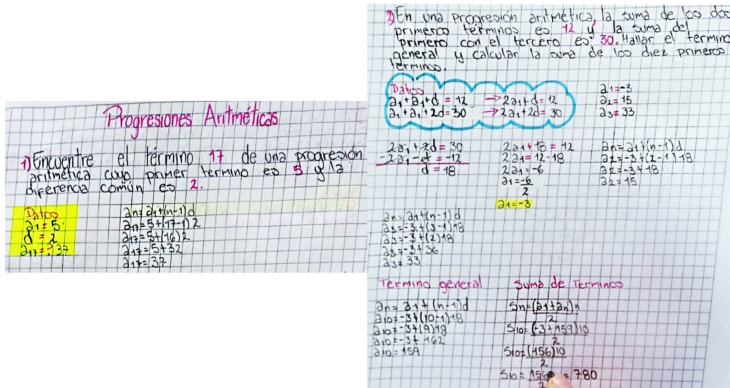 Progresiones Aritméticas
1) Encuentre el término 17 de una progresión
aritmética cuyo primer termino es 5 y la
diferencia común es 2.
Datos
a1 = 5
d = 2
a17 = ? 37
an = a1+(n-1)d
a17 = 5+(17-1)2
a17 = 5+(16)2
a17 = 5+32
a17 = 37
2) En una progresión aritmética, la suma de los dos
primeros terminos es 12 y la suma del
primero con el tercero es: 30. Hallar el termino
general y calcular la suma de los diez primeros
terminos.
Datos
a1+a1+d = 12 → 2a1+d = 12
a1+a1+2d = 30 → 2a1+2d = 30
a1 = -3
a2 = 15
a3 = 33
2a1+2d = 30
-2a1-d = -12
d = 18
2a1+18 = 12
2a1 = 12-18
2a1 = -6
a1 = -6
2
a1 = -3
an = a1+(n-1)d
a2 = -3+(2-1)18
a2 = -3+18
a2 = 15
an = a1+(n-1)d
a3 = -3+(3-1)18
a3 = -3+(2)18
a3 = -3+36
a3 = 33
Termino general
an = a1+(n-1)d
a10 = -3+(10-1)18
a10 = -3+(9)18
a10 = -3+162
a10 = 159
Suma de Terminos
Sn = (a1+an)n
2
S10 = (-3+159)10
2
S10 = (156)10
2
S10 = 156 = 780
2